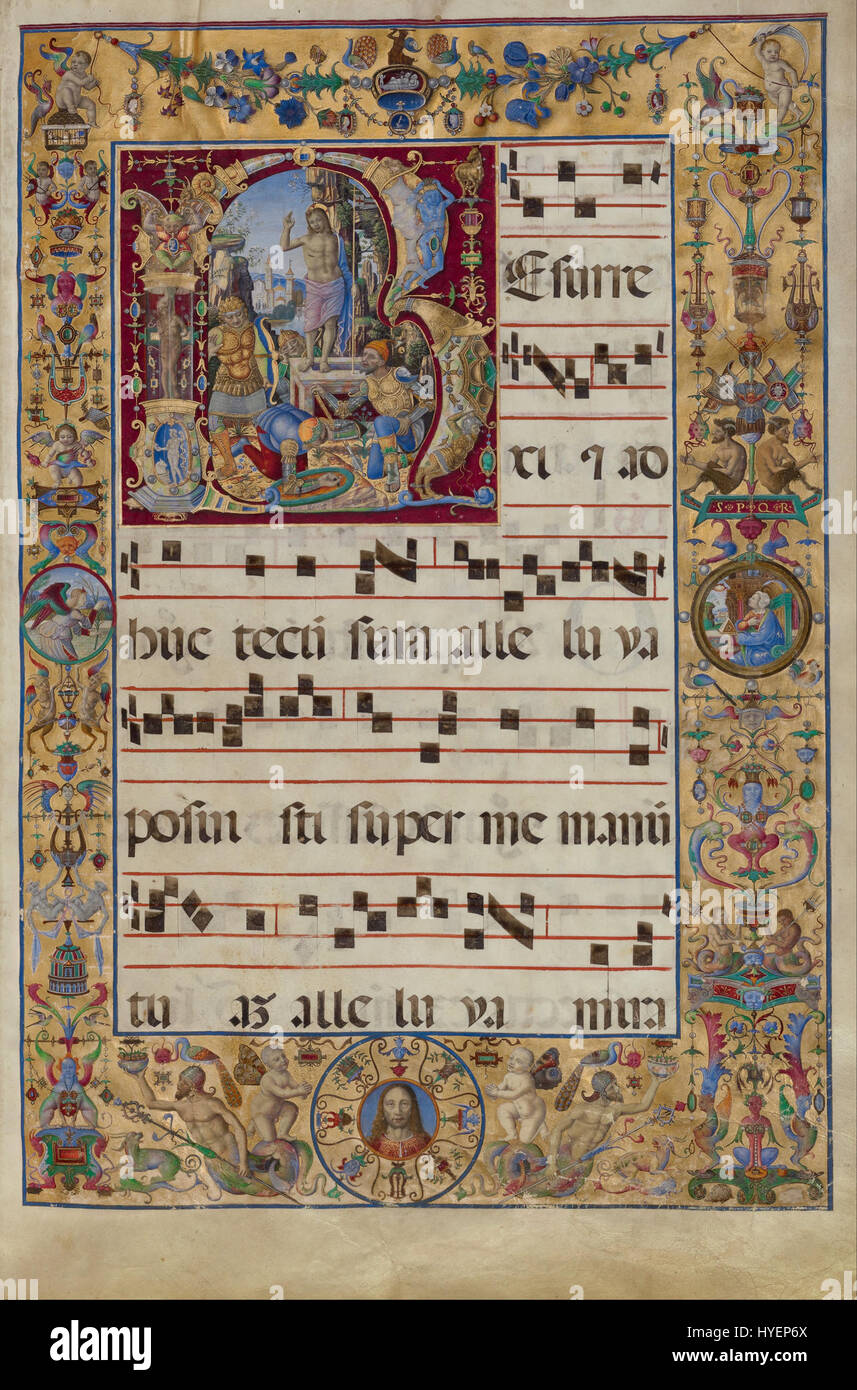 Resurre
xi ⁊ ad
huc tecū
sum alle lu ya
posui sti super me manū
tu aʒ alle lu ya mira
S·P·Q·R·
a
alamy
a
alamy stock photo
HYEP6X
www.alamy.com